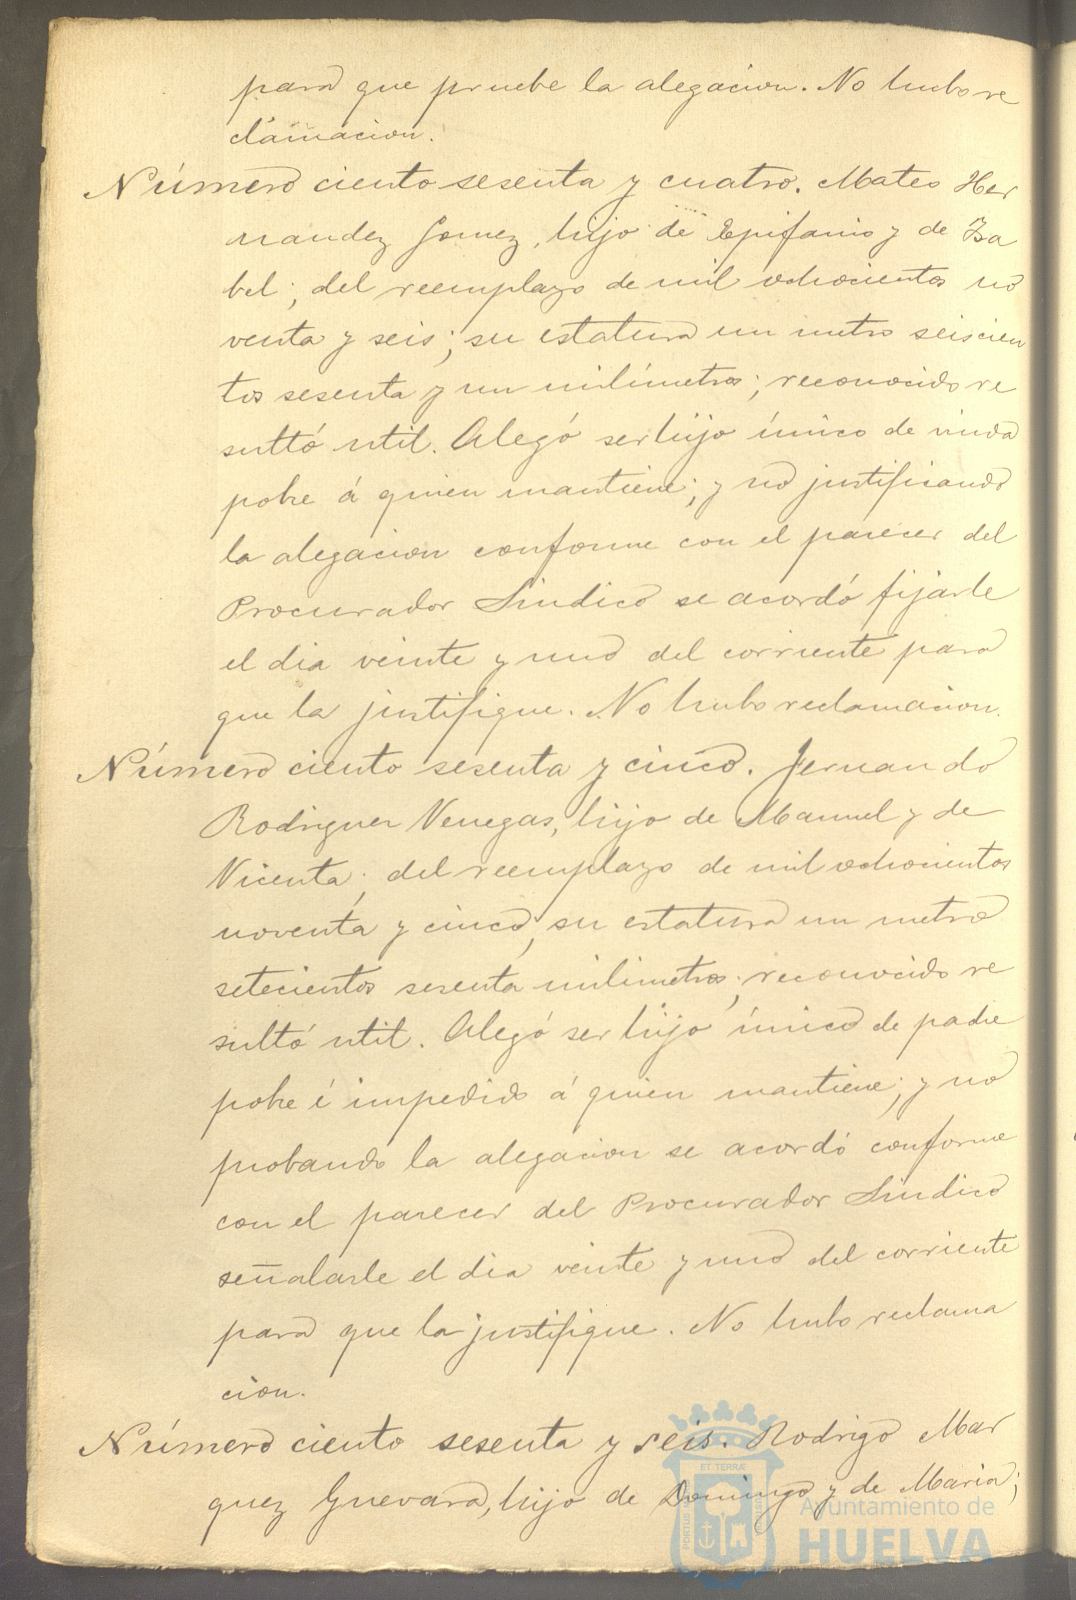 para que pruebe la alegacion. No hubo re
clamacion.
Número ciento sesenta y cuatro. Mateo Her
nandez Gomez, hijo de Epifanio y de Isa
bel; del reemplazo de mil ochocientos no
venta y seis; su estatura un metro seiscien
tos sesenta y un milímetros; reconocido re
sultó util. Alegó ser hijo único de viuda
pobre á quien mantiene; y no justificando
la alegacion conforme con el parecer del
Procurador Sindico se acordó fijarle
el dia veinte y uno del corriente para
que la justifique. No hubo reclamacion.
Número ciento sesenta y cinco. Fernando
Rodriguez Venegas, hijo de Manuel y de
Vicenta; del reemplazo de mil ochocientos
noventa y cinco; su estatura un metro
setecientos sesenta milimetros; reconocido re
sultó util. Alegó ser hijo único de padre
pobre é impedido á quien mantiene; y no
probando la alegacion se acordó conforme
con el parecer del Procurador Sindico
señalarle el dia veinte y uno del corriente
para que la justifique. No hubo reclama
cion.
Número ciento sesenta y seis. Rodrigo Mar
quez Guevara, hijo de Domingo y de Maria;
ET TERRÆ
PORTUS
Ayuntamiento de
HUELVA